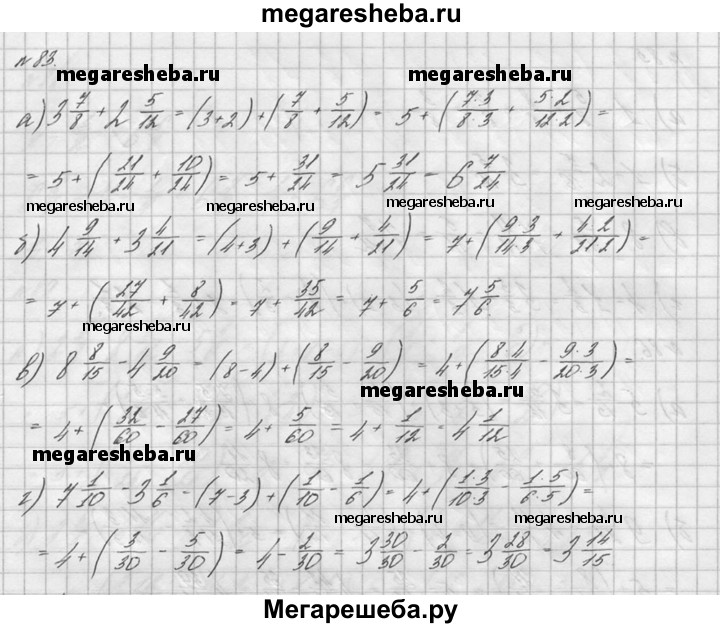 megaresheba.ru
№ 83.
megaresheba.ru megaresheba.ru
а) 3 7/8 + 2 5/12 = (3+2) + (7/8 + 5/12) = 5 + (7·3/8·3 + 5·2/12·2) =
= 5 + (21/24 + 10/24) = 5 + 31/24 = 5 31/24 = 6 7/24
megaresheba.ru megaresheba.ru megaresheba.ru
б) 4 9/14 + 3 4/21 = (4+3) + (9/14 + 4/21) = 7 + (9·3/14·3 + 4·2/21·2) =
= 7 + (27/42 + 8/42) = 7 + 35/42 = 7 + 5/6 = 7 5/6.
megaresheba.ru
в) 8 8/15 - 4 9/20 = (8-4) + (8/15 - 9/20) = 4 + (8·4/15·4 - 9·3/20·3) =
megaresheba.ru
= 4 + (32/60 - 27/60) = 4 + 5/60 = 4 + 1/12 = 4 1/12
megaresheba.ru
г) 7 1/10 - 3 1/6 = (7-3) + (1/10 - 1/6) = 4 + (1·3/10·3 - 1·5/6·5) =
megaresheba.ru megaresheba.ru
= 4 + (3/30 - 5/30) = 4 - 2/30 = 3 30/30 - 2/30 = 3 28/30 = 3 14/15
Мегарешеба.ру